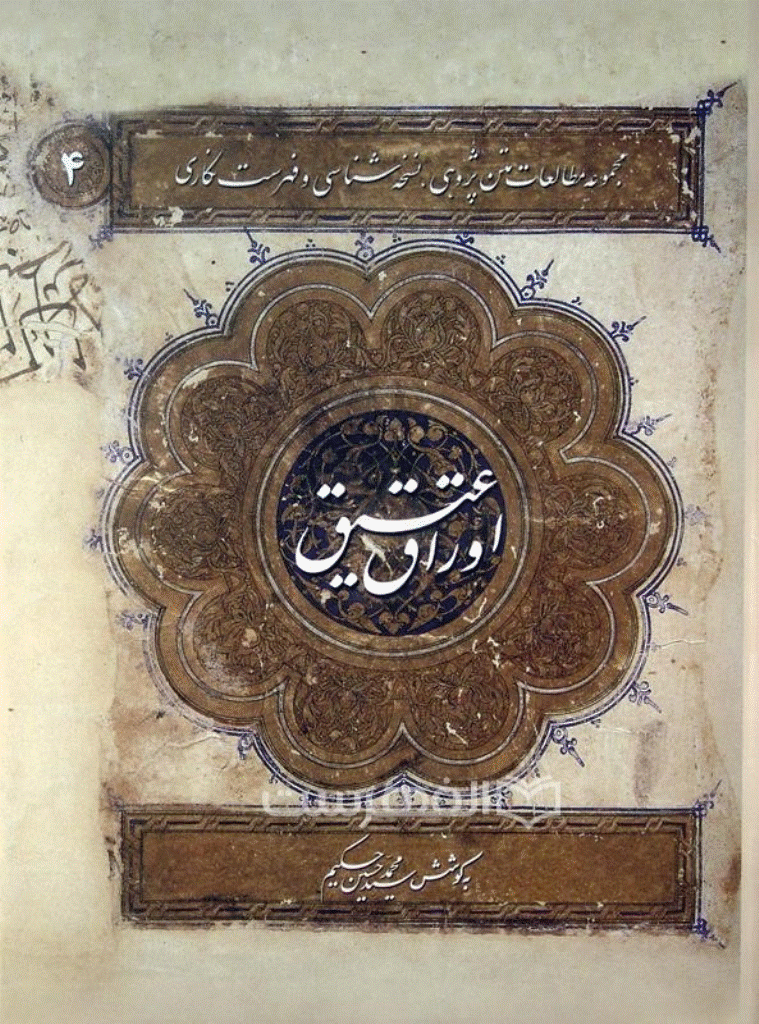 مجموعه مطالعات متن پژوهی، نسخه شناسی و فهرست نگاری
۴
اوراق عتیق
به کوشش سید محمد حسین حکیم
الفهرست